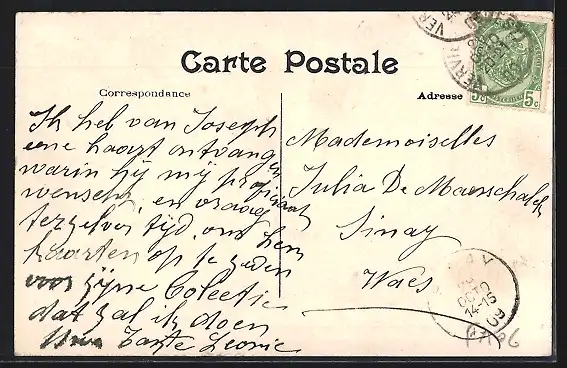 Carte Postale
Correspondance
Adresse
Ik heb van Joseph
eene kaart ontvangen
warin hij mij proficiaat
wenscht, en vraag
terzelver tijd, om hem
kaarten op te zeden
voor zijne Colectie
dat zal ik doen
Tante Leonie
Mademoiselles
Julia De Maerschalck
Sinay
Waes
5c 5c
14-15